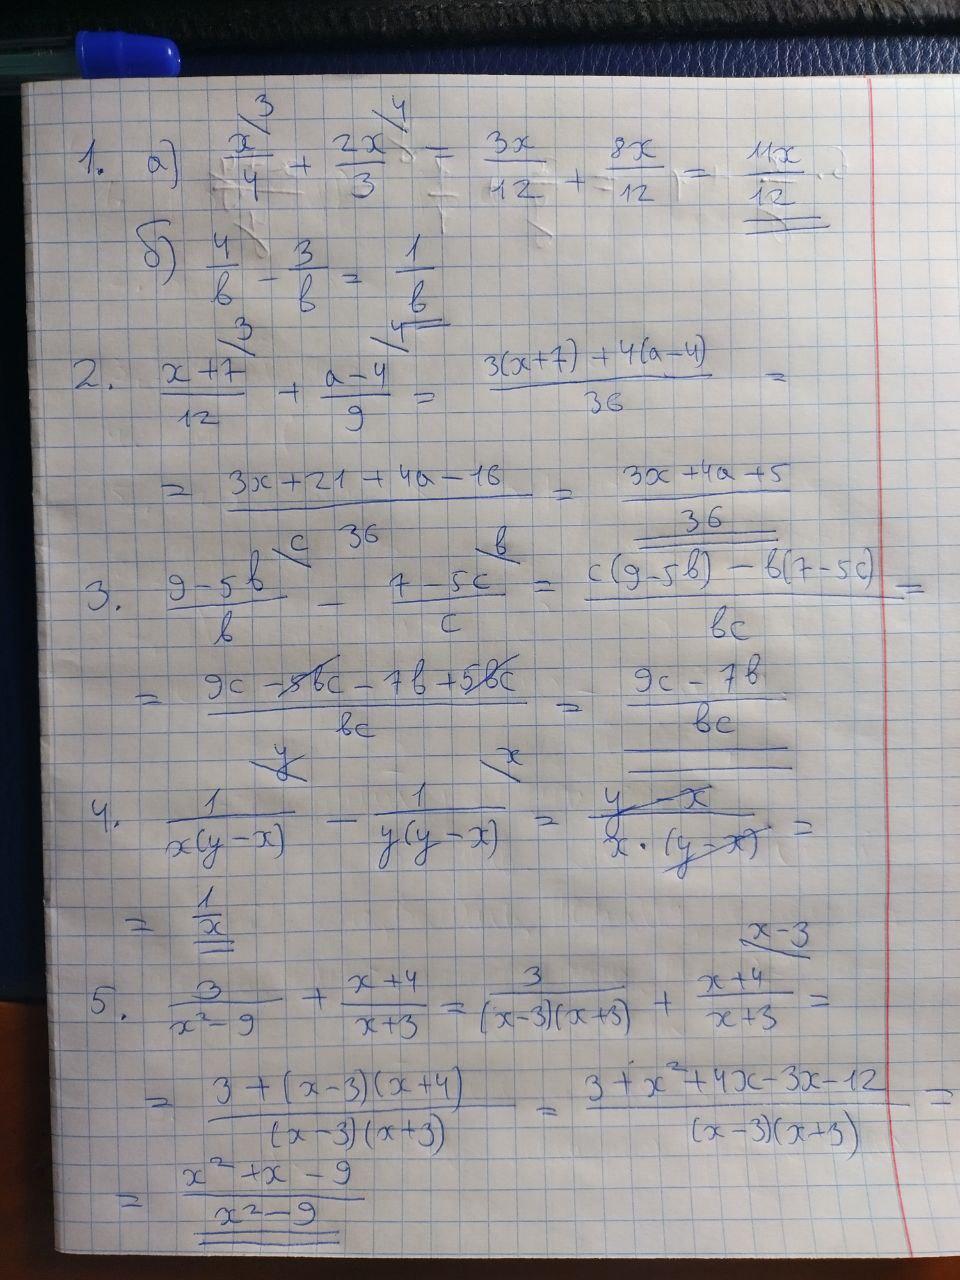 1. а) x/4 \3 + 2x/3 \4 = 3x/12 + 8x/12 = 11x/12
б) 4/в - 3/в = 1/в
2. (x+7)/12 \3 + (a-4)/9 \4 = (3(x+7)+4(a-4))/36 =
= (3x+21+4a-16)/36 = (3x+4a+5)/36
3. (9-5в)/в \c - (7-5c)/c \в = (c(9-5в)-в(7-5c))/вc =
= (9c-5вc-7в+5вc)/вc = (9c-7в)/вc
4. 1/(x(y-x)) \y - 1/(y(y-x)) \x = (y-x)/(x·(y-x)) =
= 1/x
5. 3/(x²-9) + (x+4)/(x+3) = 3/((x-3)(x+3)) + (x+4)/(x+3) \x-3 =
= (3+(x-3)(x+4))/((x-3)(x+3)) = (3+x²+4x-3x-12)/((x-3)(x+3)) =
= (x²+x-9)/(x²-9)